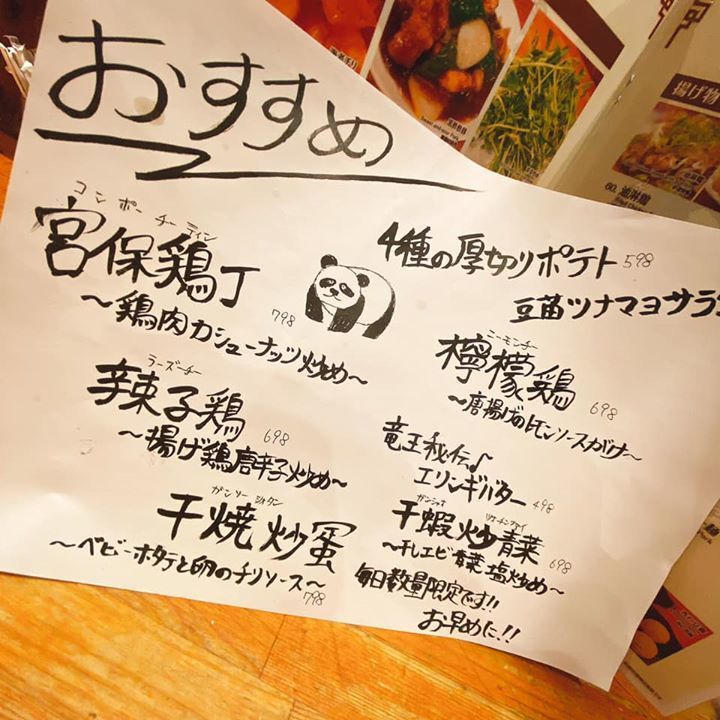 おすすめ
コンポーチーティン
宮保鶏丁
798
～鶏肉カシューナッツ炒め～
ラーズーチー
辣子鶏
698
～揚げ鶏唐辛子炒め～
ガンソーシャタン
干焼炒蛋
～ベビーホタテと卵のチリソース～
798
4種の厚切りポテト 598
豆苗ツナマヨサラ
ニーモンチー
檸檬鶏
698
～唐揚げのレモンソースがけ～
竜王秘伝♪
エリンギバター 498
干蝦炒青菜
698
～干しエビ青菜塩炒め～
毎日数量限定です!!
お早めに!!
揚げ物
60. 油淋鶏